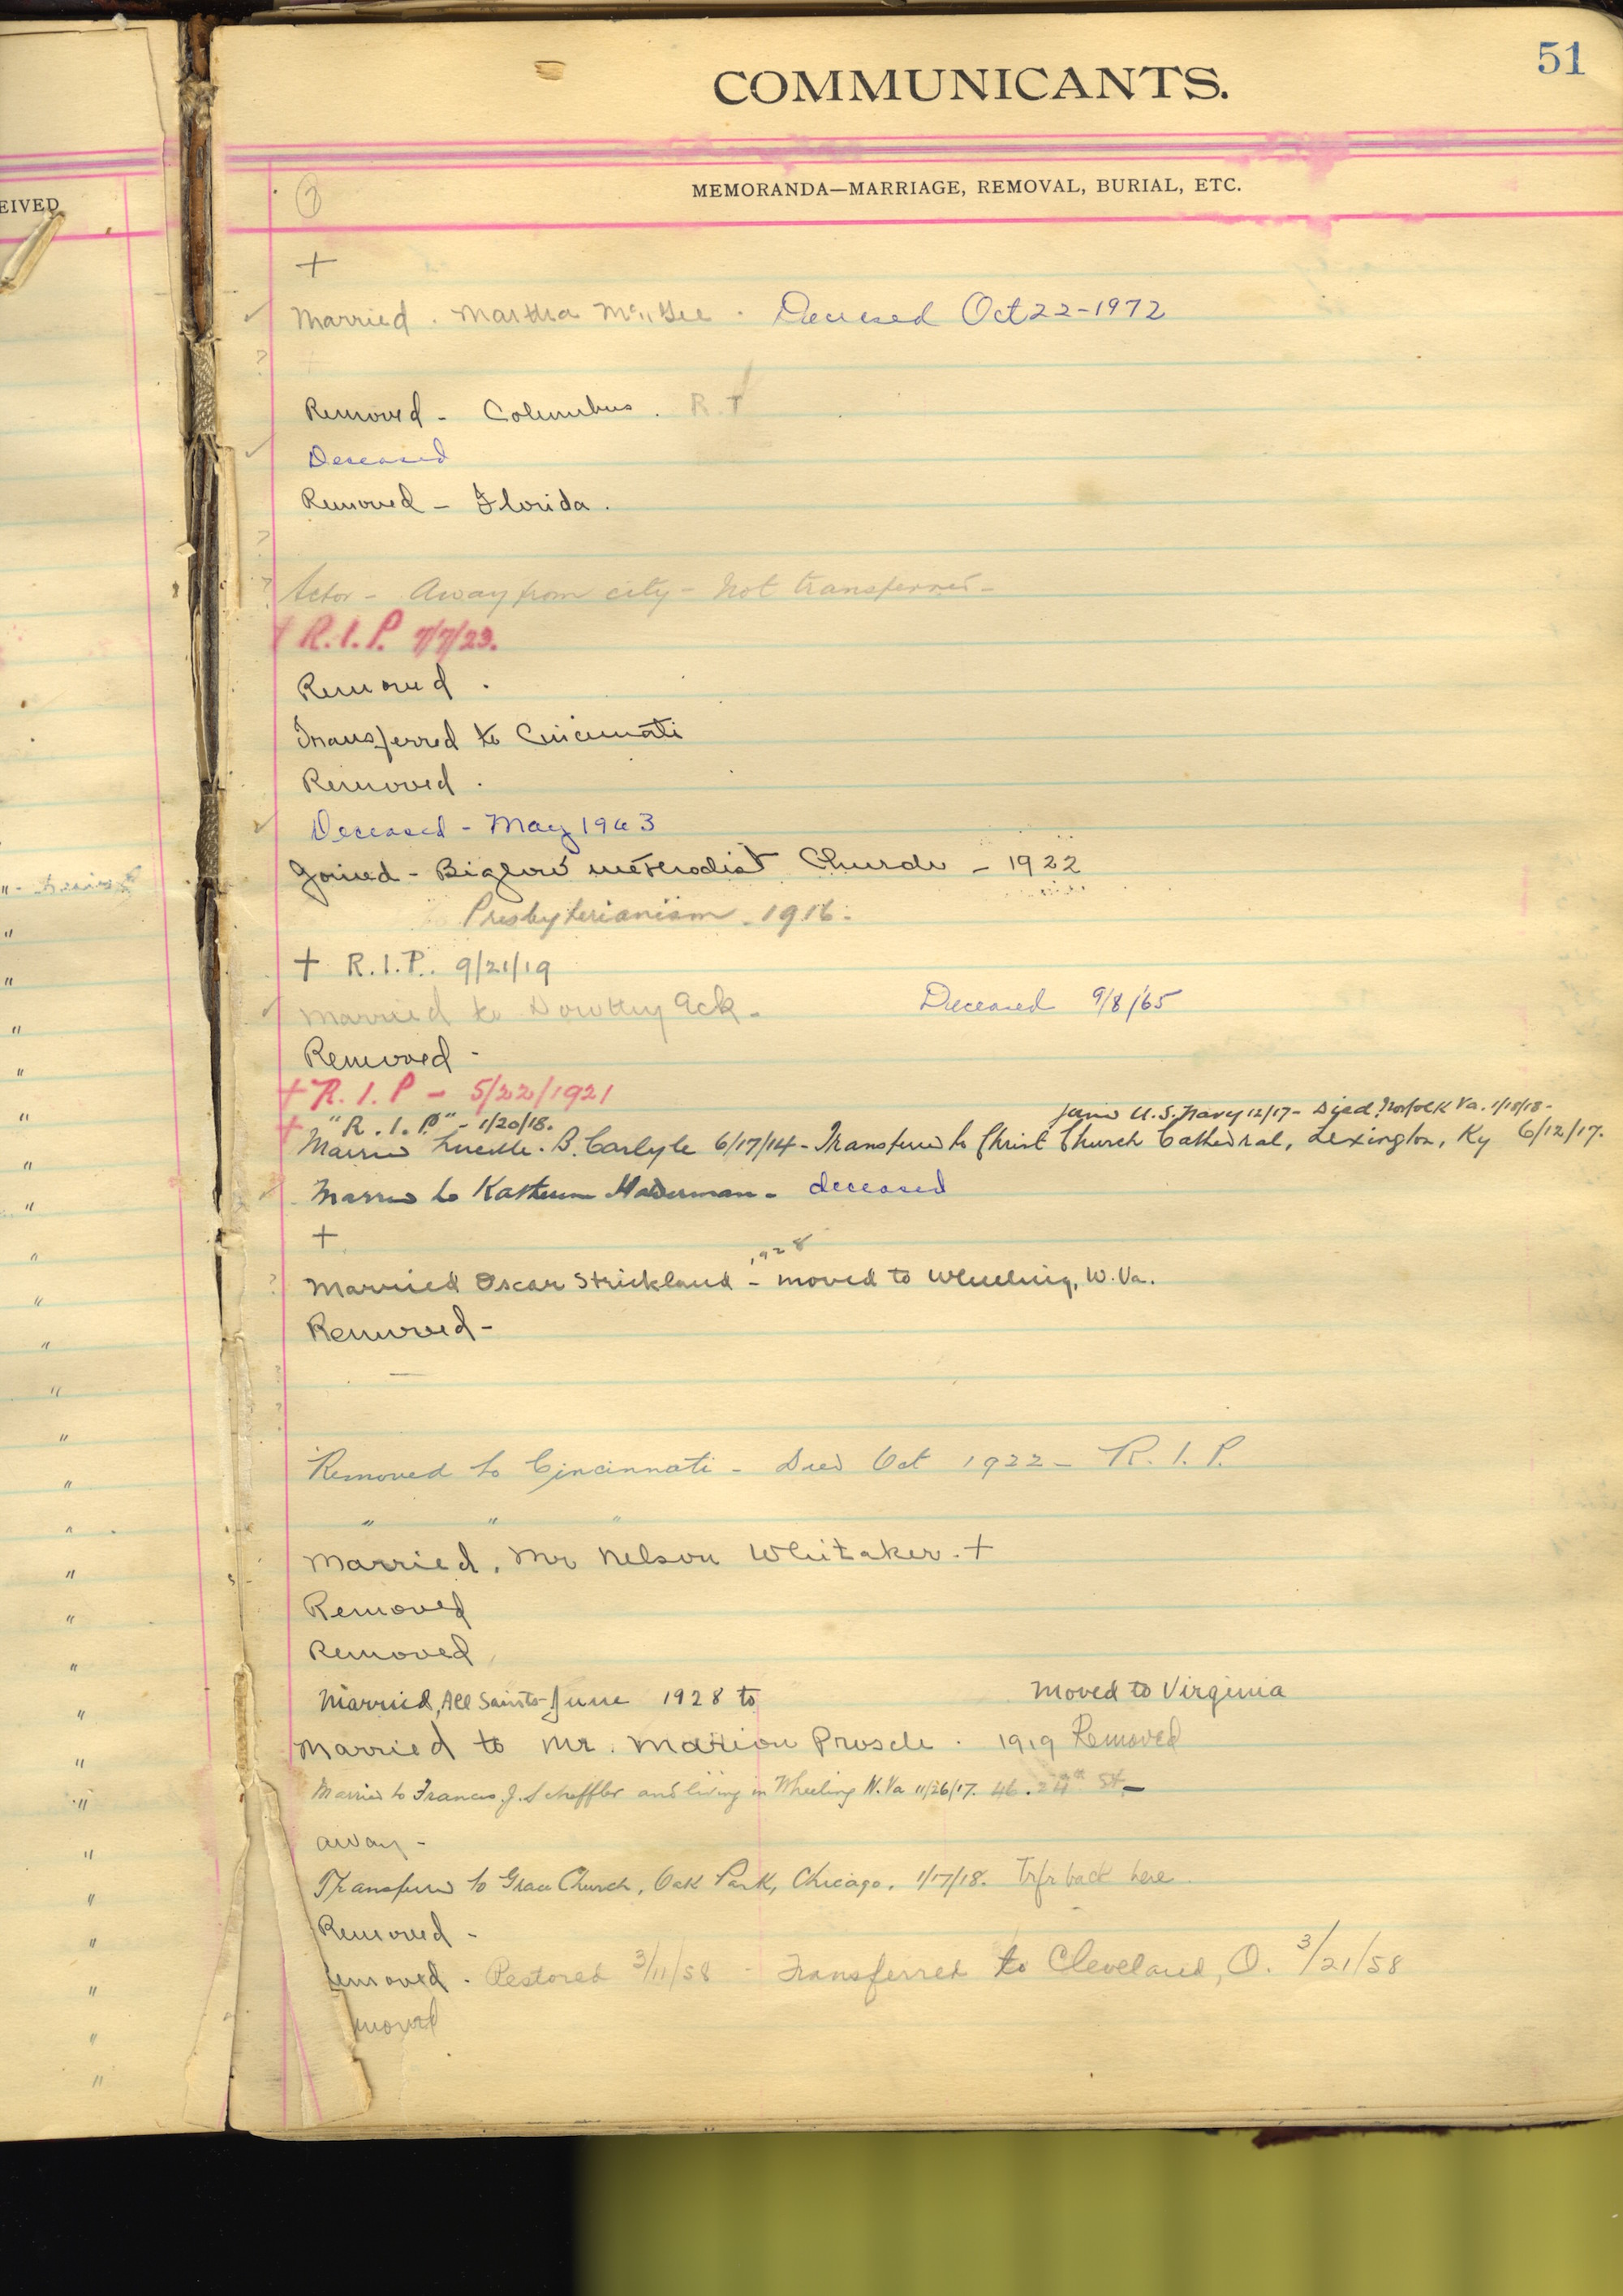 51
COMMUNICANTS.
EIVED
MEMORANDA—MARRIAGE, REMOVAL, BURIAL, ETC.
+
Married. Martha Deceased Oct 22-1972
?
Removed - Columbus. R.T
Deceased
Removed - Florida.
?
? Actor - Away from city - Not transferred -
† R.I.P. 7/7/23.
Removed.
Transferred to Cincinnati
Removed.
Deceased - May 1963
Joined - Biglow Methodist Church - 1922
Presbyterianism - 1916.
+ R.I.P. 9/21/19
Married to Dorothy Ack. Deceased 9/8/65
Removed -
+ R.I.P - 5/22/1921
+ "R.I.P" - 1/20/18. Joined U.S. Navy 12/17 - Died Norfolk Va. 1/18/18 -
Married Lucille. B. Carlyle 6/17/14 - Transferred to Christ Church Cathedral, Lexington, Ky 6/12/17.
Married to Deceased
+
1928
? Married Oscar Strickland - moved to Wheeling, W. Va.
Removed -
Removed to Cincinnati - Died Oct 1922 - R.I.P.
" " "
Married. Mr Nelson Whitaker. +
Removed
Removed
Married, All Saints - June 1928 to Moved to Virginia
Married to Mr. Marion 1919 Removed
Married to Francis J. Scheffler and living in Wheeling W. Va 11/26/17. 46. 24th St -
away -
Transferred to Grace Church, Oak Park, Chicago. 1/17/18. Trfr back here.
Removed -
Removed. Restored 3/11/58 - Transferred to Cleveland, O. 3/21/58
moved